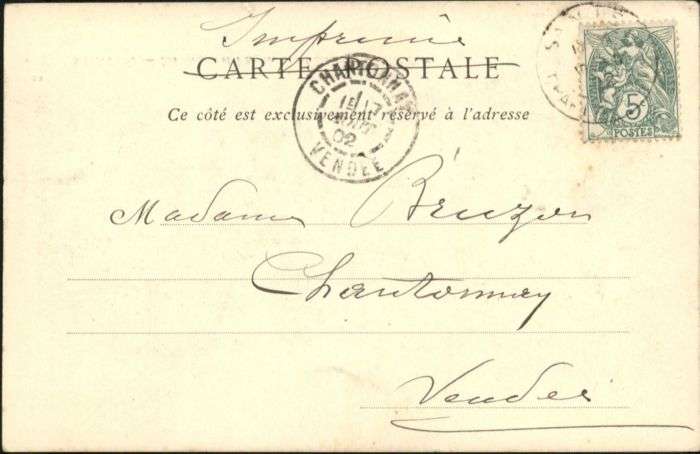 Imprimé
CARTE POSTALE
Ce côté est exclusivement réservé à l'adresse
CHANTONNAY
17
AOUT
02
VENDÉE
5c
POSTES
Madame Bruzon
Chantonnay
Vendée